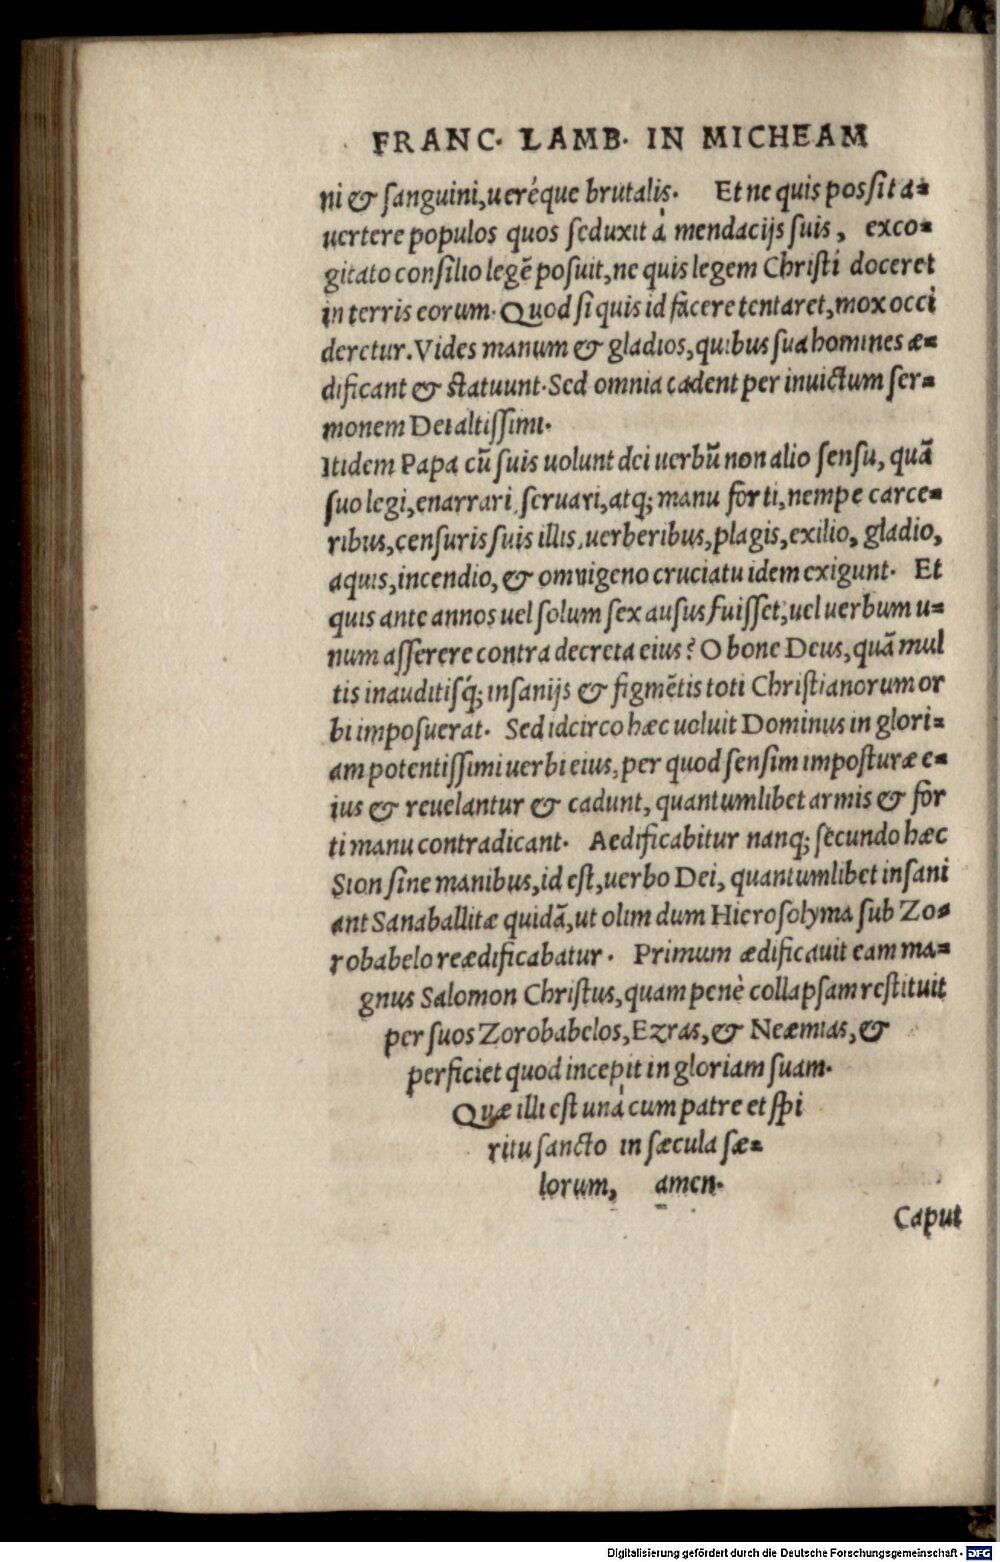 FRANC· LAMB· IN MICHEAM
ni & sanguini, ueréque brutalis· Et ne quis possit a=
uertere populos quos seduxit à mendacijs suis, exco=
gitato consilio legẽ posuit, ne quis legem Christi doceret
in terris eorum· Quod si quis id facere tentaret, mox occi
deretur. Vides manum & gladios, quibus sua homines æ=
dificant & statuunt· Sed omnia cadent per inuictum ser=
monem Dei altissimi·
Itidem Papa cũ suis uolunt dei uerbũ non alio sensu, quã
suo legi, enarrari, seruari, atq; manu forti, nempe carce=
ribus, censuris suis illis, uerberibus, plagis, exilio, gladio,
aquis, incendio, & omnigeno cruciatu idem exigunt· Et
quis ante annos uel solum sex ausus fuisset, uel uerbum u=
num asserere contra decreta eius? O bone Deus, quã mul
tis inauditisq́; insanijs & figmẽtis toti Christianorum or
bi imposuerat· Sed idcirco hæc uoluit Dominus in glori=
am potentissimi uerbi eius, per quod sensim imposturæ e=
ius & reuelantur & cadunt, quantumlibet armis & for
ti manu contradicant· Aedificabitur nanq; secundo hæc
Sion sine manibus, id est, uerbo Dei, quantumlibet insani
ant Sanaballitæ quidã, ut olim dum Hierosolyma sub Zo=
robabelo reædificabatur· Primum ædificauit eam ma=
gnus Salomon Christus, quam penè collapsam restituit
per suos Zorobabelos, Ezras, & Neæmias, &
perficiet quod incepit in gloriam suam·
Quæ illi est unà cum patre et spi
ritu sancto in sæcula sæ=
lorum, amen·
Caput
Digitalisierung gefördert durch die Deutsche Forschungsgemeinschaft - DFG